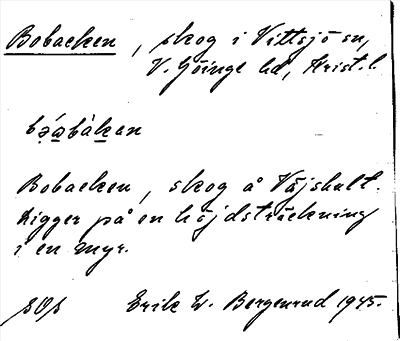 Bobacken, skog i Vittsjö sn,
V. Göinge hd, Krist. l.
Bobacken, skog å Väjshult.
Ligger på en höjdsträckning
i en myr.
Erik W. Bergenrud 1945.